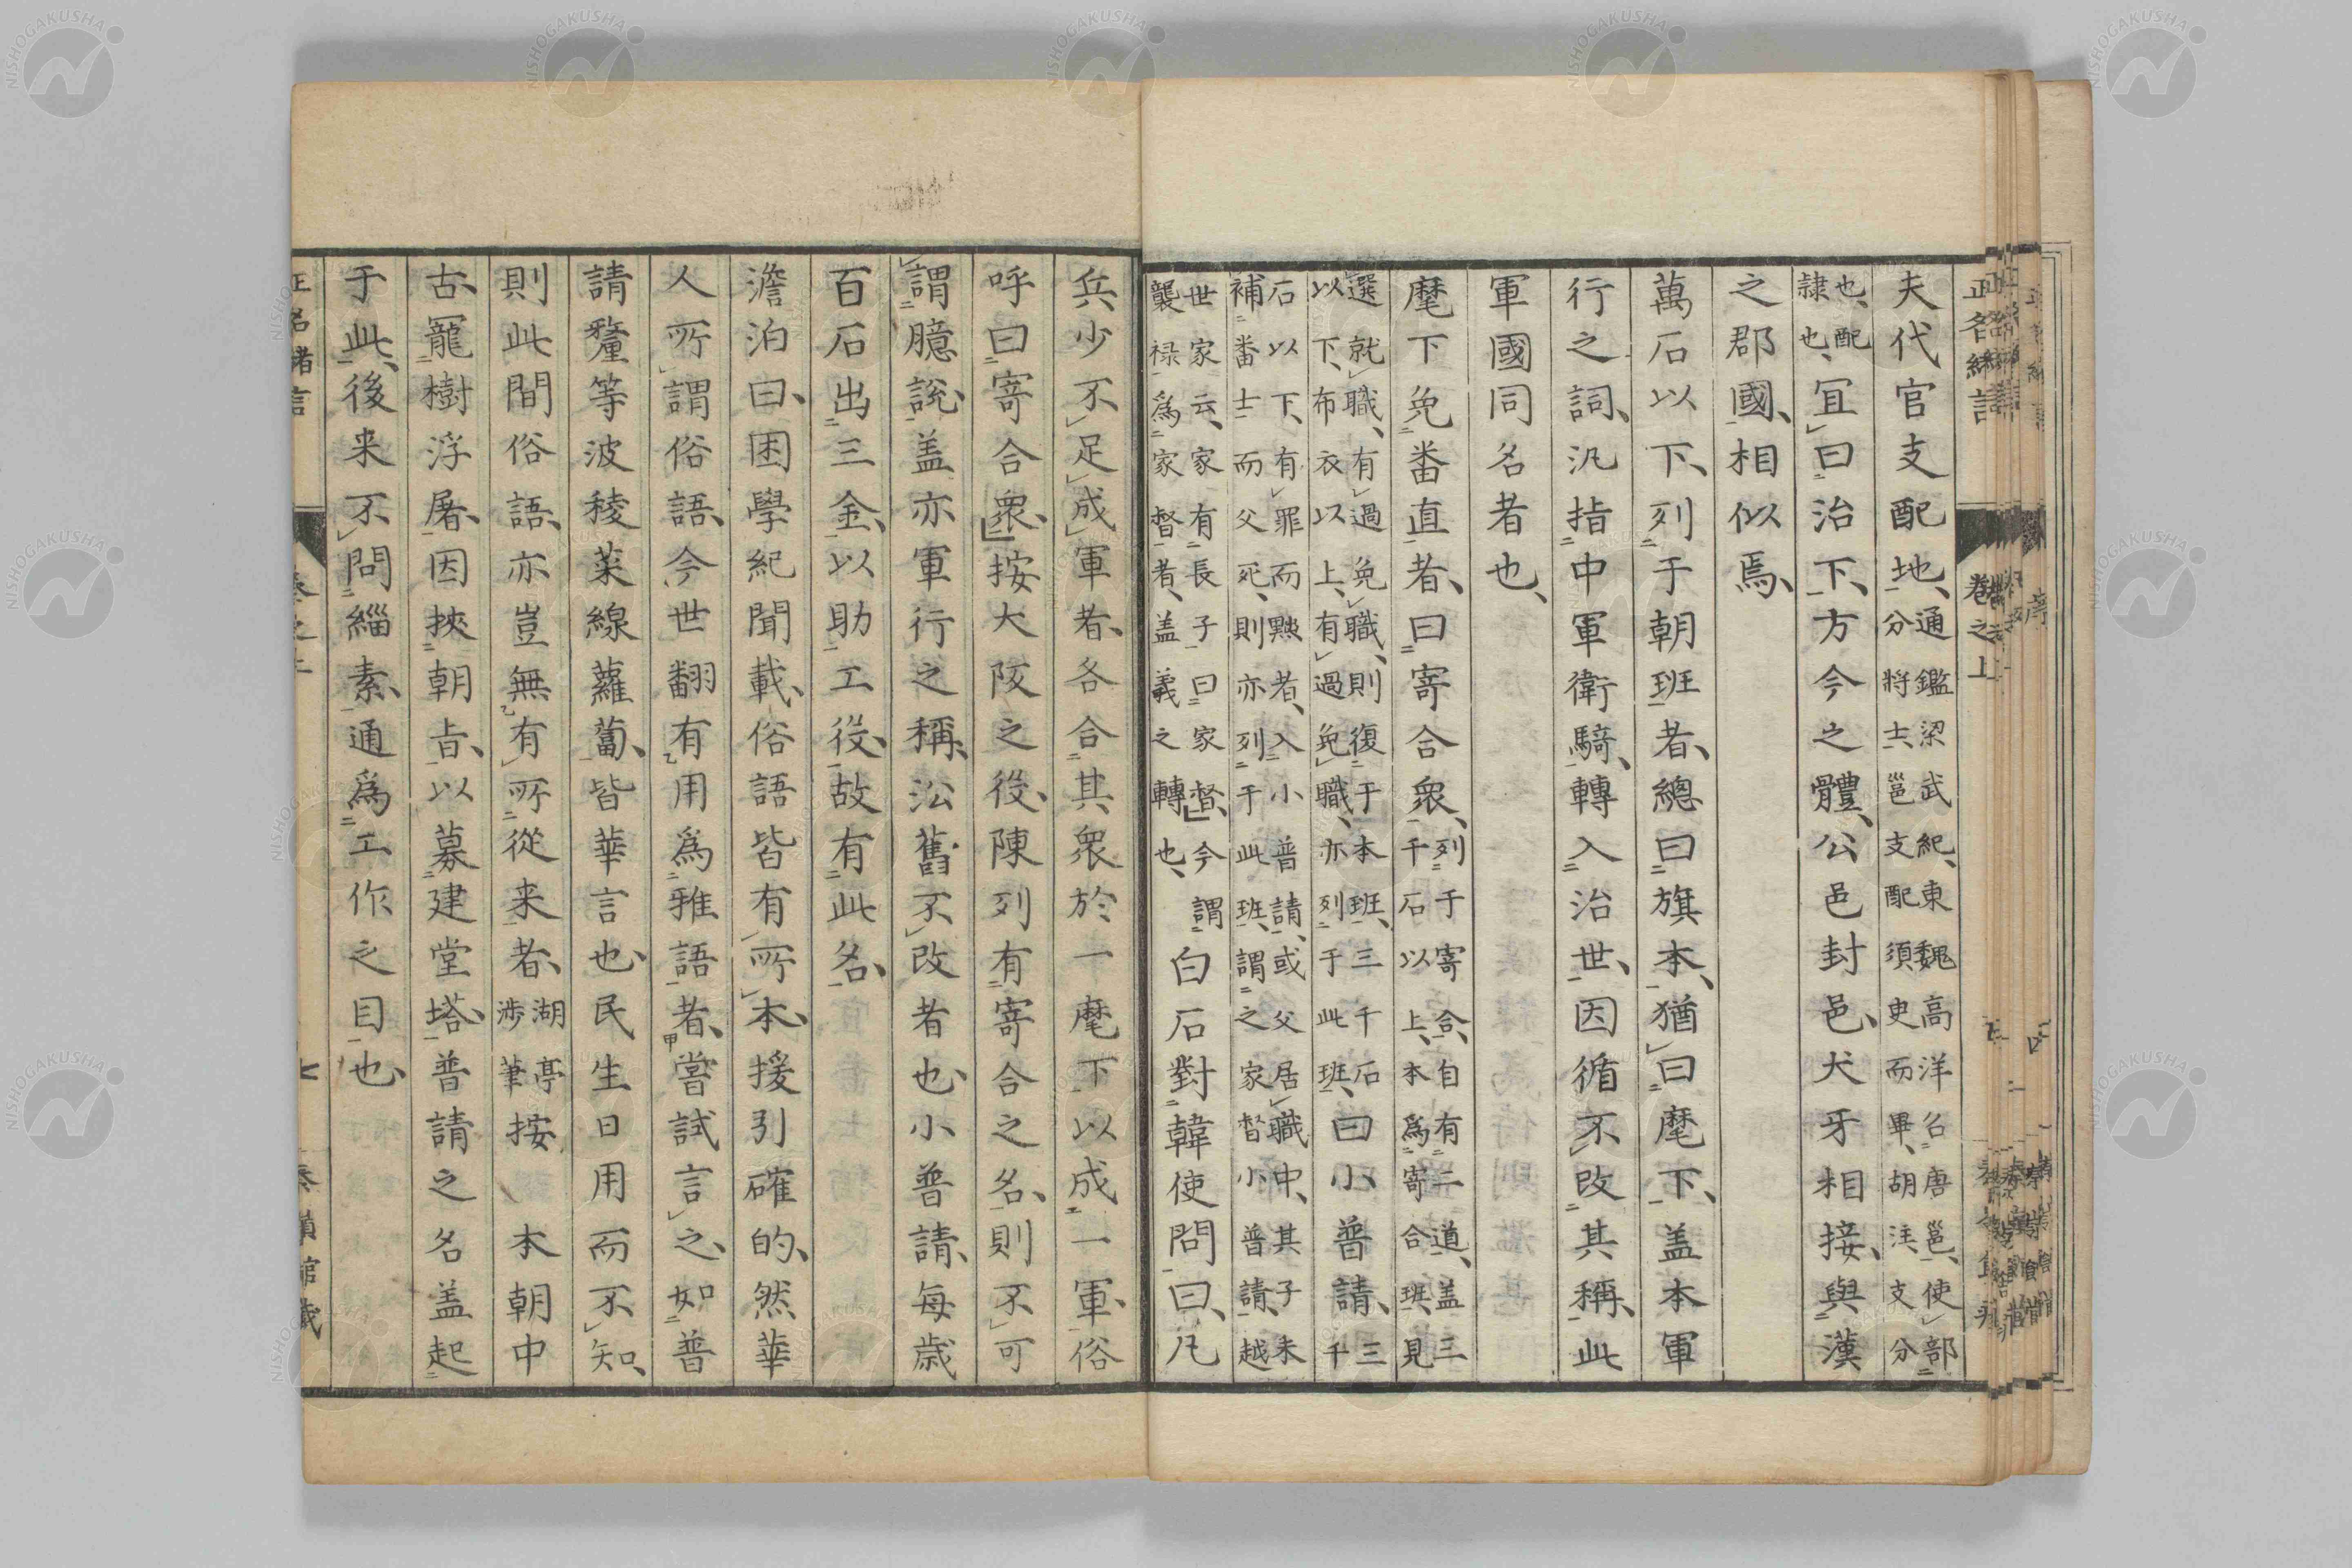 正名緒言　卷之上
夫代官支配地、通鑑梁武紀、東魏高洋名唐邕、使部
分將士、邕支配須史而畢、胡注、支分
也、配
隷也、宜曰治下、方今之體、公邑封邑、犬牙相接、與漢
之郡國、相似焉、
萬石以下、列于朝班者、總曰旗本、猶曰麾下、盖本軍
行之詞、汎指中軍衛騎、轉入治世、因循不改其稱、此
軍國同名者也、
麾下免番直者、曰寄合衆、列于寄合、自有二道、盖三
千石以上、本爲寄合班、見
選就職、有過免職、則復于本班、三千石
以下、布衣以上、有過免職、亦列于此班、曰小普請、三
千
石以下、有罪而黜者、入小普請、或父居職中、其子未
補番士而父死、則亦列于此班、謂之家督小普請、越
世家云、家有長子曰家督、今謂
襲禄爲家督者、盖義之轉也、白石對韓使問曰、凡
兵少不足成軍者、各合其衆於一麾下、以成一軍、俗
呼曰寄合衆、按大阪之役、陳列有寄合之名、則不可
謂臆説、盖亦軍行之稱、沿舊不改者也、小普請、每歳
百石出三金、以助工役、故有此名、
澹泊曰、困學紀聞載、俗語皆有所本、援引確的、然華
人所謂俗語、今世翻有用爲雅語者、嘗試言之、如普
請𨤲等波稜菜線蘿蔔、皆華言也、民生日用而不知、
則此間俗語、亦豈無有所從来者、湖亭
渉筆按　本朝中
古、寵樹浮屠、因挾朝旨、以募建堂塔、普請之名盖起
于此、後来不問緇素、通爲工作之目也、
正名緒言　卷之上　七　奏嶺館藏